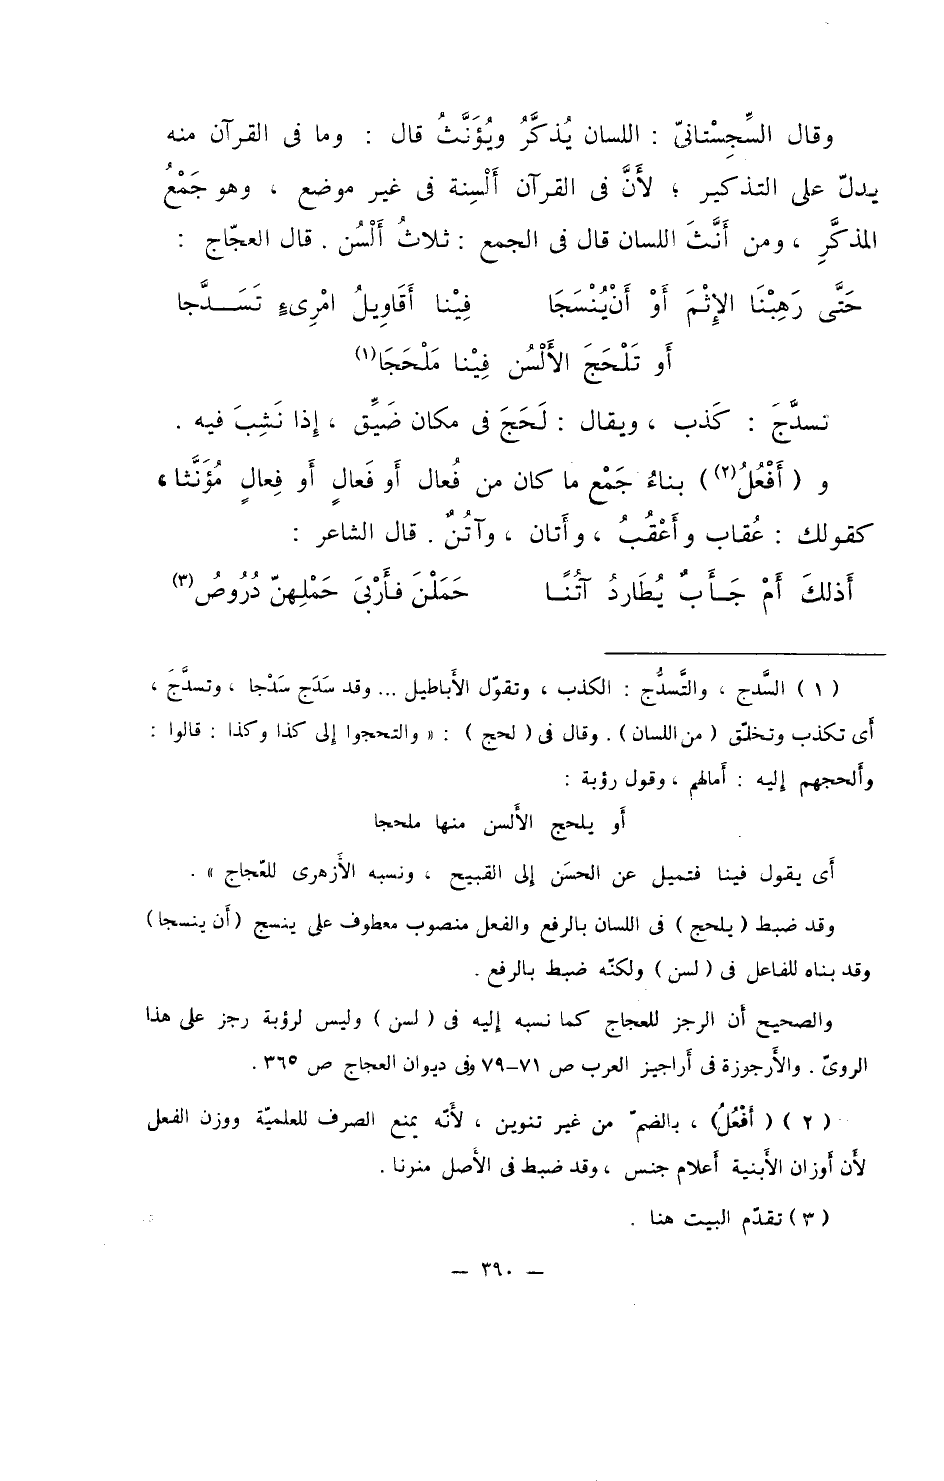 وقال السِّجِسْتانىّ : اللسان يُذكَّرُ ويُؤَنَّثُ قال : وما فى القرآن منه
يدلّ على التذكير ؛ لأَنَّ فى القرآن أَلْسِنة فى غير موضع ، وهو جَمْعُ
المذكَّرِ ، ومن أَنَّثَ اللسان قال فى الجمع : ثلاثُ أَلْسُن . قال العجّاج :
حَتَّى رَهِبْنَا الإِثْمَ أَوْ أَنْ يُنْسَجَا فِيْنا أَقَاوِيلُ امْرِىءٍ تَسَــدَّجا
أَو تَلْحَجَ الأَلْسُن فِيْنا مَلْحَجَا(١)
تسدَّجَ : كَذب ، ويقال : لَحَجَ فى مكان ضَيِّق ، إذا نَشِبَ فيه .
و ( أَفْعُلُ(٢) ) بناءُ جَمْع ما كان من فُعال أَو فَعالٍ أَو فِعالٍ مُؤَنَّثا ،
كقولك : عُقاب وأَعْقُبُ ، وأَتان ، وآتُنٌ . قال الشاعر :
أَذلكَ أَمْ جَــأْبٌ يُطَارِدُ آتُنًــا حَمَلْنَ فأَرْبَى حَمْلِهنّ دُرُوصُ(٣)
( ١ ) السَّدج ، والتَّسدُّج : الكذب ، وتقوّل الأَباطيل ... وقد سَدَج سَدْجا ، وتسدَّجَ ،
أَى تكذب وتخلّق ( من اللسان ) . وقال فى ( لحج ) : « والتحجوا إلى كذا وكذا : قالوا :
وأَلحجهم إليه : أَمالهم ، وقول رؤبة :
أَو يلحج الأَلسن منها ملحجا
أَى يقول فينا فتميل عن الحسَن إلى القبيح ، ونسبه الأَزهرى للعّجاج » .
وقد ضبط ( يلحج ) فى اللسان بالرفع والفعل منصوب معطوف على ينسج ( أَن ينسجا )
وقد بناه للفاعل فى ( لسن ) ولكنّه ضبط بالرفع .
والصحيح أَن الرجز للعجاج كما نسبه إليه فى ( لسن ) وليس لرؤبة رجز على هذا
الروىّ . والأَرجوزة فى أَراجيز العرب ص ٧١-٧٩ وفى ديوان العجاج ص ٣٦٥ .
( ٢ ) ( أَفْعُلُ) ، بالضمّ من غير تنوين ، لأَنّه يمنع الصرف للعلميّة ووزن الفعل
لأَن أَوزان الأَبنية أَعلام جنس ، وقد ضبط فى الأَصل منرنا .
( ٣ ) تقدّم البيت هنا .
— ٣٩٠ —